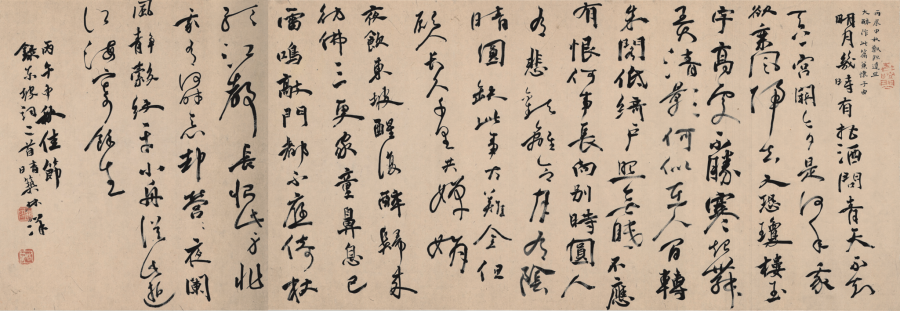 丙辰中秋歡飲達旦
大醉作此篇兼懷子由
明月幾時有把酒問青天不知
天上宮闕今夕是何年我
欲乘風歸去又恐瓊樓玉
宇高處不勝寒起舞
弄清影何似在人間轉
朱閣低綺戶照無眠不應
有恨何事長向別時圓人
有悲歡離合月有陰
晴圓缺此事古難全但
願人長久千里共嬋娟
夜飲東坡醒復醉歸來
彷彿三更家童鼻息已
雷鳴敲門都不應倚杖
聽江聲長恨此身非
我有何時忘卻營〻夜闌
風靜縠紋平小舟從此逝
江海寄餘生
丙午中秋佳節
錄東坡詞二首